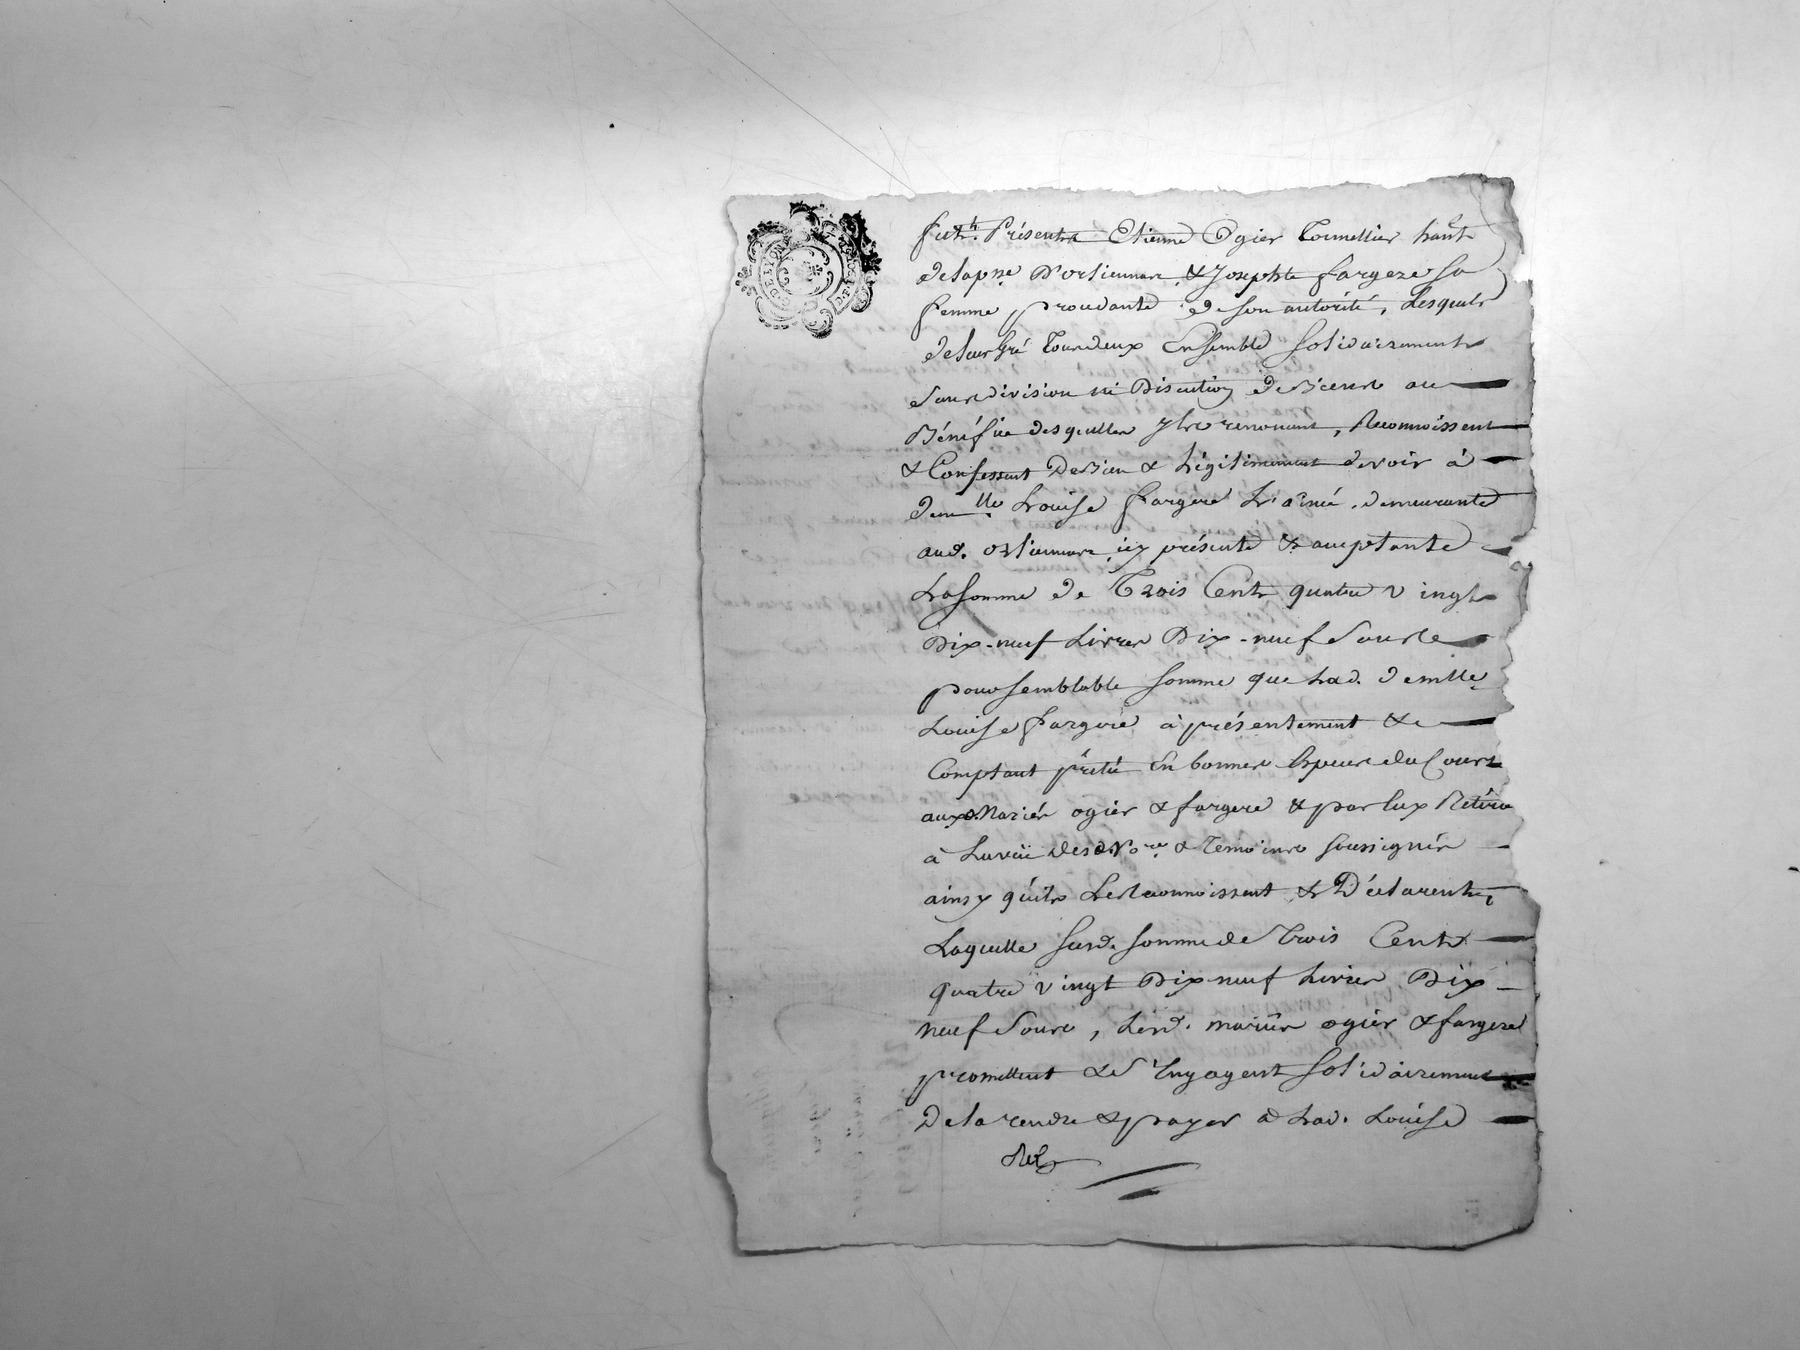 G. DE LYON
Présents Etienne Ogier Tonnellier habt
de la p.sse D'orliennas, & Josephte fargere sa
femme procedante de son autorité, Lesquels
de leur gré Tous deux Ensemble solidairement
sans division ni Discution de biens au
Bénéfice desquelles ils renoncent, Reconnoissent
& Confessent Debien & Légitimement devoir à
dem.lle Louise fargere L'ainée, demeurante
aud. orliennas icy présente & acceptante
La somme de Trois Cents quatre vingt
Dix-neuf Livres Dix-neuf Sous
pour semblable somme que Lad. demlle
Louise fargere à présentement &
Comptant prêté En bonnes Espèces du Cours
aux d. Mariés ogier & fargere & par Eux Retiré
à La vüe des d. No.re & Temoins soussignés
ainsy qu'ils Le Reconnoissent & Déclarent,
Laquelle susd. somme de Trois Cents
quatre vingt Dix-neuf Livres Dix-
neuf Sous, Lesd. mariés ogier & fargere
promettent & s'Engagent solidairement
De la rendre & payer à Lad. Louise